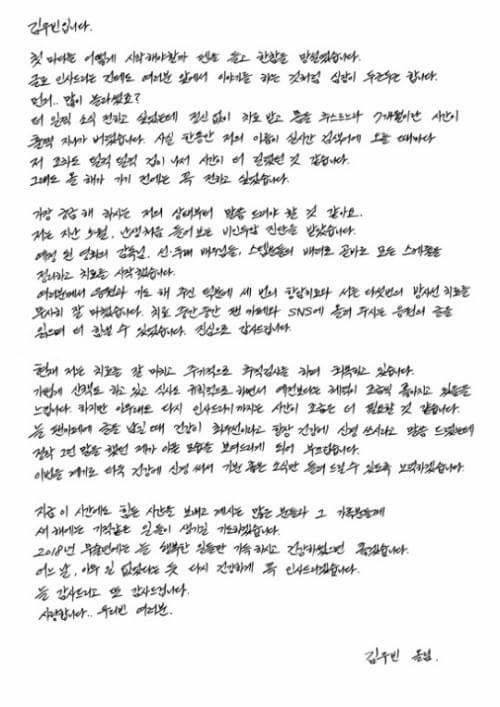 김우빈입니다.
첫 마디는 어떻게 시작해야할까 펜을 들고 한참을 망설였습니다.
글로 인사드리는 건데도 여러분 앞에서 이야기를 하는 것처럼 심장이 두근두근 합니다.
먼저.. 많이 놀라셨죠?
더 일찍 소식 전하고 싶었는데 정신 없이 치료 받고 몸을 추스르느라 7개월이란 시간이
훌쩍 지나가 버렸습니다. 사실 한동안 저의 이름이 실시간 검색어에 오를 때마다
저 조차도 덜컥 덜컥 겁이 나서 시간이 더 걸렸던 것 같습니다.
그래도 올 해가 가기 전에는 꼭 전하고 싶었습니다.
가장 궁금해 하시는 저의 상태부터 말씀 드려야 할 것 같아요.
저는 지난 5월, 난생처음 들어보는 비인두암 진단을 받았습니다.
예정 된 영화의 감독님, 선·후배 배우님들, 스탭분들의 배려로 곧바로 모든 스케줄을
정리하고 치료를 시작 했습니다.
여러분께서 응원과 기도 해 주신 덕분에 세 번의 항암치료와 서른 다섯번의 방사선 치료를
무사히 잘 마쳤습니다. 치료 중간중간 팬 카페와 SNS에 올려 주시는 응원의 글을
읽으며 더 힘낼 수 있었습니다. 진심으로 감사드립니다.
현재 저는 치료를 잘 마치고 주기적으로 추적검사를 하며 회복하고 있습니다.
가볍게 산책도 하고 있고 식사도 규칙적으로 하면서 예전보다는 체력이 조금씩 좋아지고 있음을
느낍니다. 하지만 아무래도 다시 인사드리기 까지는 시간이 조금은 더 필요할 것 같습니다.
늘 팬카페에 글을 남길 때 건강이 최우선이라고 항상 건강에 신경 쓰시라고 말씀 드렸는데
정작 그런 말을 했던 제가 아픈 모습을 보여드리게 되어 부끄럽습니다.
이번을 계기로 더욱 건강에 신경 써서 기쁘고 좋은 소식만 들려 드릴 수 있도록 노력하겠습니다.
지금 이 시간에도 힘든 시간을 보내고 계시는 많은 분들과 그 가족분들께
새 해에는 기적같은 일들이 생기길 기도하겠습니다.
2018년 무술년에는 늘 행복한 일들만 가득 하시고 건강하셨으면 좋겠습니다.
어느 날, 아무 일 없었다는 듯 다시 건강하게 꼭 인사드리겠습니다.
늘 감사드리고 또 감사드립니다.
사랑합니다.. 우리빈 여러분.
김우빈 올림.